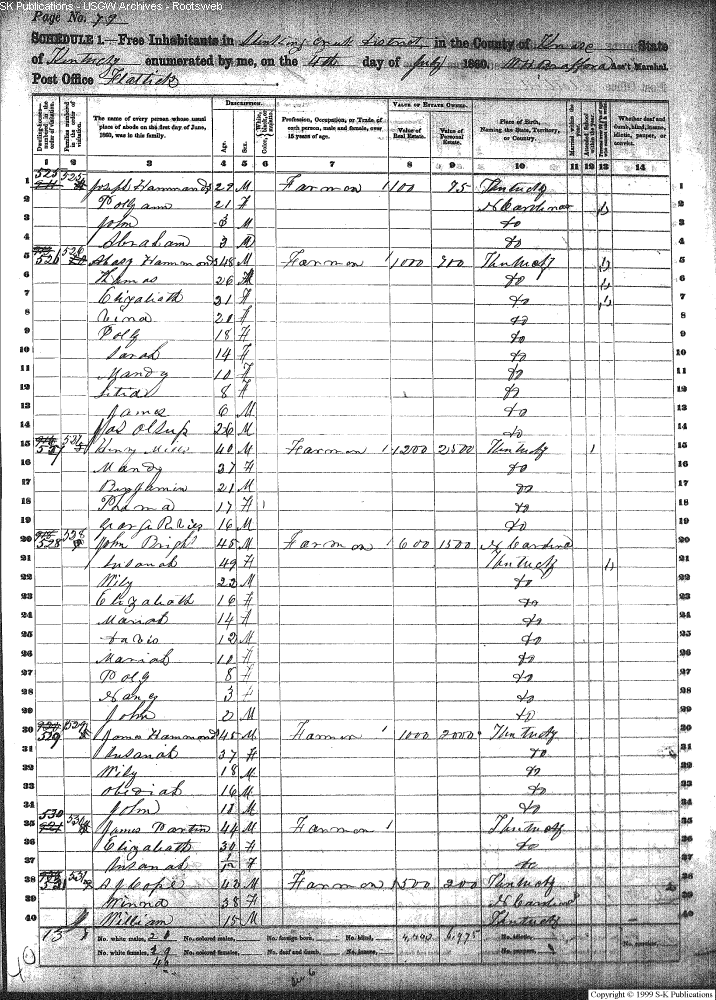 SK Publications - USGW Archives - Rootsweb
Page No. 79
SCHEDULE 1.—Free Inhabitants in Stinking Creek District in the County of Knox State
of Kentucky enumerated by me, on the 4th day of July 1860. Ass't Marshal.
Post Office Flat lick
Dwelling-houses—numbered in the order of visitation.
Families numbered in the order of visitation.
The name of every person whose usual place of abode on the first day of June, 1860, was in this family.
DESCRIPTION.
Age.
Sex.
White, black, or mulatto.
Color,
Profession, Occupation, or Trade of each person, male and female, over 15 years of age.
VALUE OF ESTATE OWNED.
Value of Real Estate.
Value of Personal Estate.
Place of Birth, Naming the State, Territory, or Country.
Married within the year.
Attended School within the year.
Whether deaf and dumb, blind, insane, idiotic, pauper, or convict.
1 2 3 4 5 6 7 8 9 10 11 12 13 14
1 525 525 Joseph Hammonds 27 M Farmon 100 75 Kentucky 1
2 Poly ann 21 F N Carolina 2
3 John M do 3
4 Abraham 3 M do 4
5 526 526 Hammonds 48 M Farmon 1000 700 Kentucky 5
6 Thomas 26 M do 6
7 Elizabeth 21 F do 7
8 Vina 20 F do 8
9 Poly 18 F do 9
10 Sarah 14 F do 10
11 Mandy 10 F do 11
12 8 F do 12
13 James 6 M do 13
14 Jas Olsup 26 M do 14
15 527 527 Henry Mills 40 M Farmon 1200 2500 Kentucky 1 15
16 Mandy 37 F do 16
17 Benjamin 21 M do 17
18 17 F do 18
19 George 16 M do 19
20 528 528 John Bright 45 M Farmon 600 1500 N Carolina 20
21 Susanah 49 F Kentucky 21
22 Wily 22 M do 22
23 Elizabeth 16 F do 23
24 Mariah 14 F do 24
25 Davis 12 M do 25
26 Mariah 10 F do 26
27 Poly 8 F do 27
28 Nancy 3 F do 28
29 John 2 M do 29
30 529 529 James Hammonds 45 M Farmon 1000 2000 Kentucky 30
31 Susanah 37 F do 31
32 Wily 18 M do 32
33 Obediah 16 M do 33
34 John 11 M do 34
35 530 530 James Partin 44 M Farmon Kentucky 35
36 Elizabeth 30 F do 36
37 Susanah 1/12 F do 37
38 531 531 Cope 42 M Farmon 1500 200 Kentucky 38
39 Winna 38 F N Carolina 39
40 William 15 M Kentucky 40
No. white males, 20 No. colored males, No. foreign born, No. blind, 4,400 6,975 No. idiotic, No. convicts,
No. white females, No. colored females, No. deaf and dumb, No. insane, No. paupers,
Copyright © 1999 S-K Publications